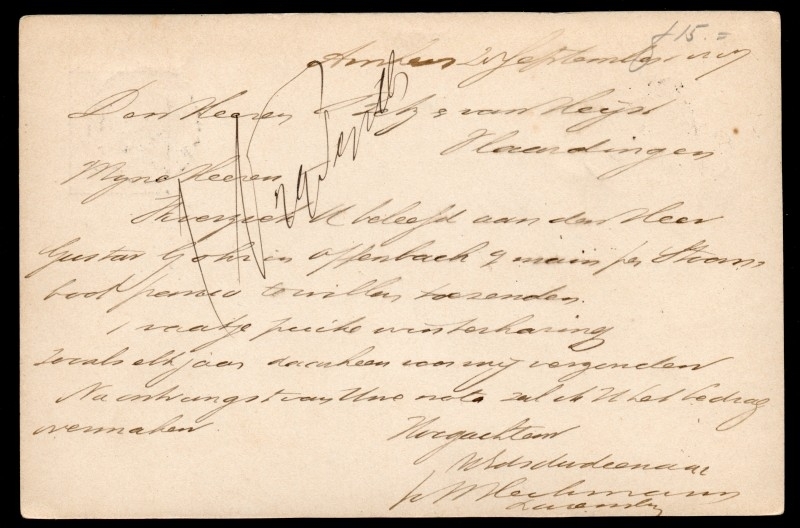 f 15.=
September
Den Heeren & van Heyst
Vlaardingen
Myne Heeren
Ik verzoek U beleefd aan den Heer
Gustav in Offenbach a main per Stoom
boot franco te willen toezenden.
1 vaatje puike winterharing
zooals elk jaar daarheen voor mij verzonden
Na ontvangst van Uwe nota zal ik U het bedrag
overmaken.
Hoogachtend
UEds dw dienaar